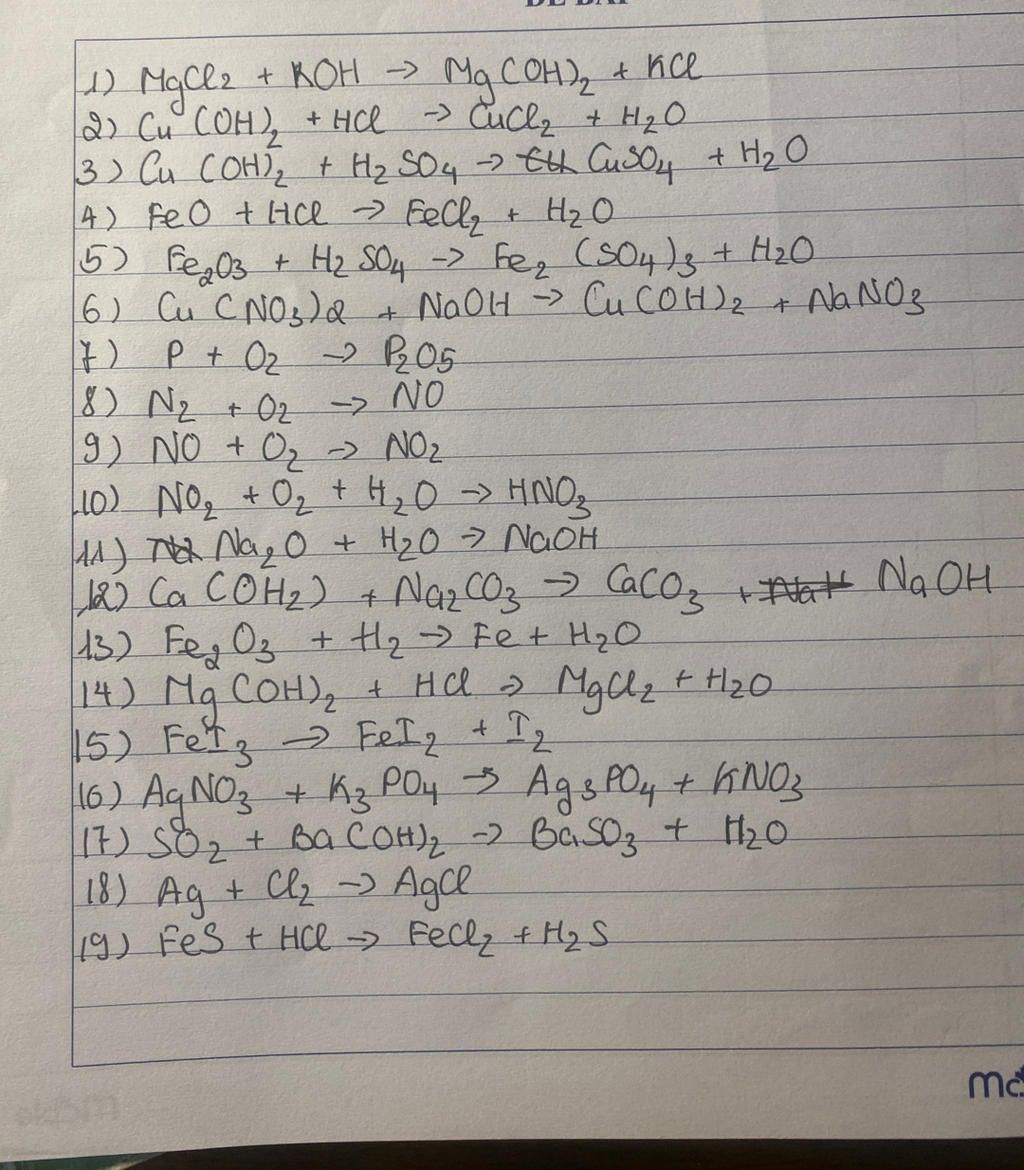 ĐỀ BÀI
1) MgCl2 + KOH → Mg(OH)2 + KCl
2) Cu(OH)2 + HCl → CuCl2 + H2O
3) Cu(OH)2 + H2SO4 → CuSO4 + H2O
4) FeO + HCl → FeCl2 + H2O
5) Fe2O3 + H2SO4 → Fe2(SO4)3 + H2O
6) Cu(NO3)2 + NaOH → Cu(OH)2 + NaNO3
7) P + O2 → P2O5
8) N2 + O2 → NO
9) NO + O2 → NO2
10) NO2 + O2 + H2O → HNO3
11) Na2O + H2O → NaOH
12) Ca(OH2) + Na2CO3 → CaCO3 + NaOH
13) Fe2O3 + H2 → Fe + H2O
14) Mg(OH)2 + HCl → MgCl2 + H2O
15) FeI3 → FeI2 + I2
16) AgNO3 + K3PO4 → Ag3PO4 + KNO3
17) SO2 + Ba(OH)2 → BaSO3 + H2O
18) Ag + Cl2 → AgCl
19) FeS + HCl → FeCl2 + H2S